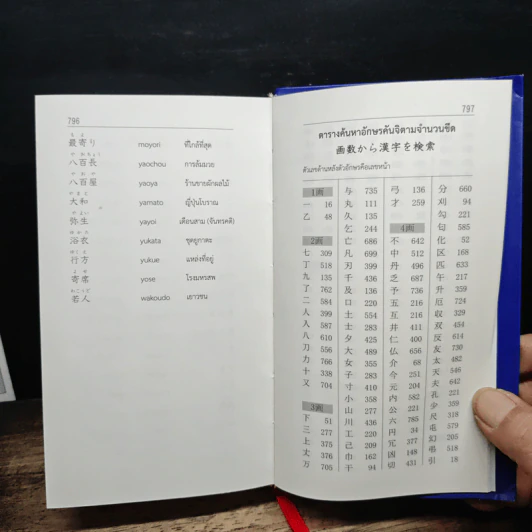 796
もより
最寄り moyori ที่ใกล้ที่สุด
やおちょう
八百長 yaochou การล้มมวย
やおや
八百屋 yaoya ร้านขายผักผลไม้
やまと
大和 yamato ญี่ปุ่นโบราณ
やよい
弥生 yayoi เดือนสาม (จันทรคติ)
ゆかた
浴衣 yukata ชุดยูกาตะ
ゆくえ
行方 yukue แหล่งที่อยู่
よせ
寄席 yose โรงมหรสพ
わこうど
若人 wakoudo เยาวชน
797
ตารางค้นหาอักษรคันจิตามจำนวนขีด
画数から漢字を検索
ตัวเลขด้านหลังตัวอักษรคือเลขหน้า
1画
一 16
乙 48
2画
七 309
丁 518
九 135
了 762
二 584
人 399
入 587
八 610
刀 556
力 766
十 338
又 704
3画
下 51
三 277
上 375
丈 376
万 705
与 735
丸 111
久 135
乞 244
亡 686
凡 699
刃 399
千 436
及 136
口 220
土 554
士 283
夕 425
大 489
女 355
子 283
寸 410
小 358
山 277
川 436
工 220
己 209
巾 162
干 94
弓 136
才 259
4画
不 642
中 512
丹 496
乏 687
予 736
五 216
互 216
井 411
仁 400
仏 656
介 68
今 251
元 204
内 582
公 221
六 785
円 34
冗 377
凶 148
切 431
分 660
刈 94
勾 221
匂 585
化 52
区 168
匹 633
午 217
升 359
厄 724
収 329
双 454
反 614
友 730
太 482
天 546
夫 642
孔 221
少 359
尺 318
屯 579
幻 205
弔 518
引 18